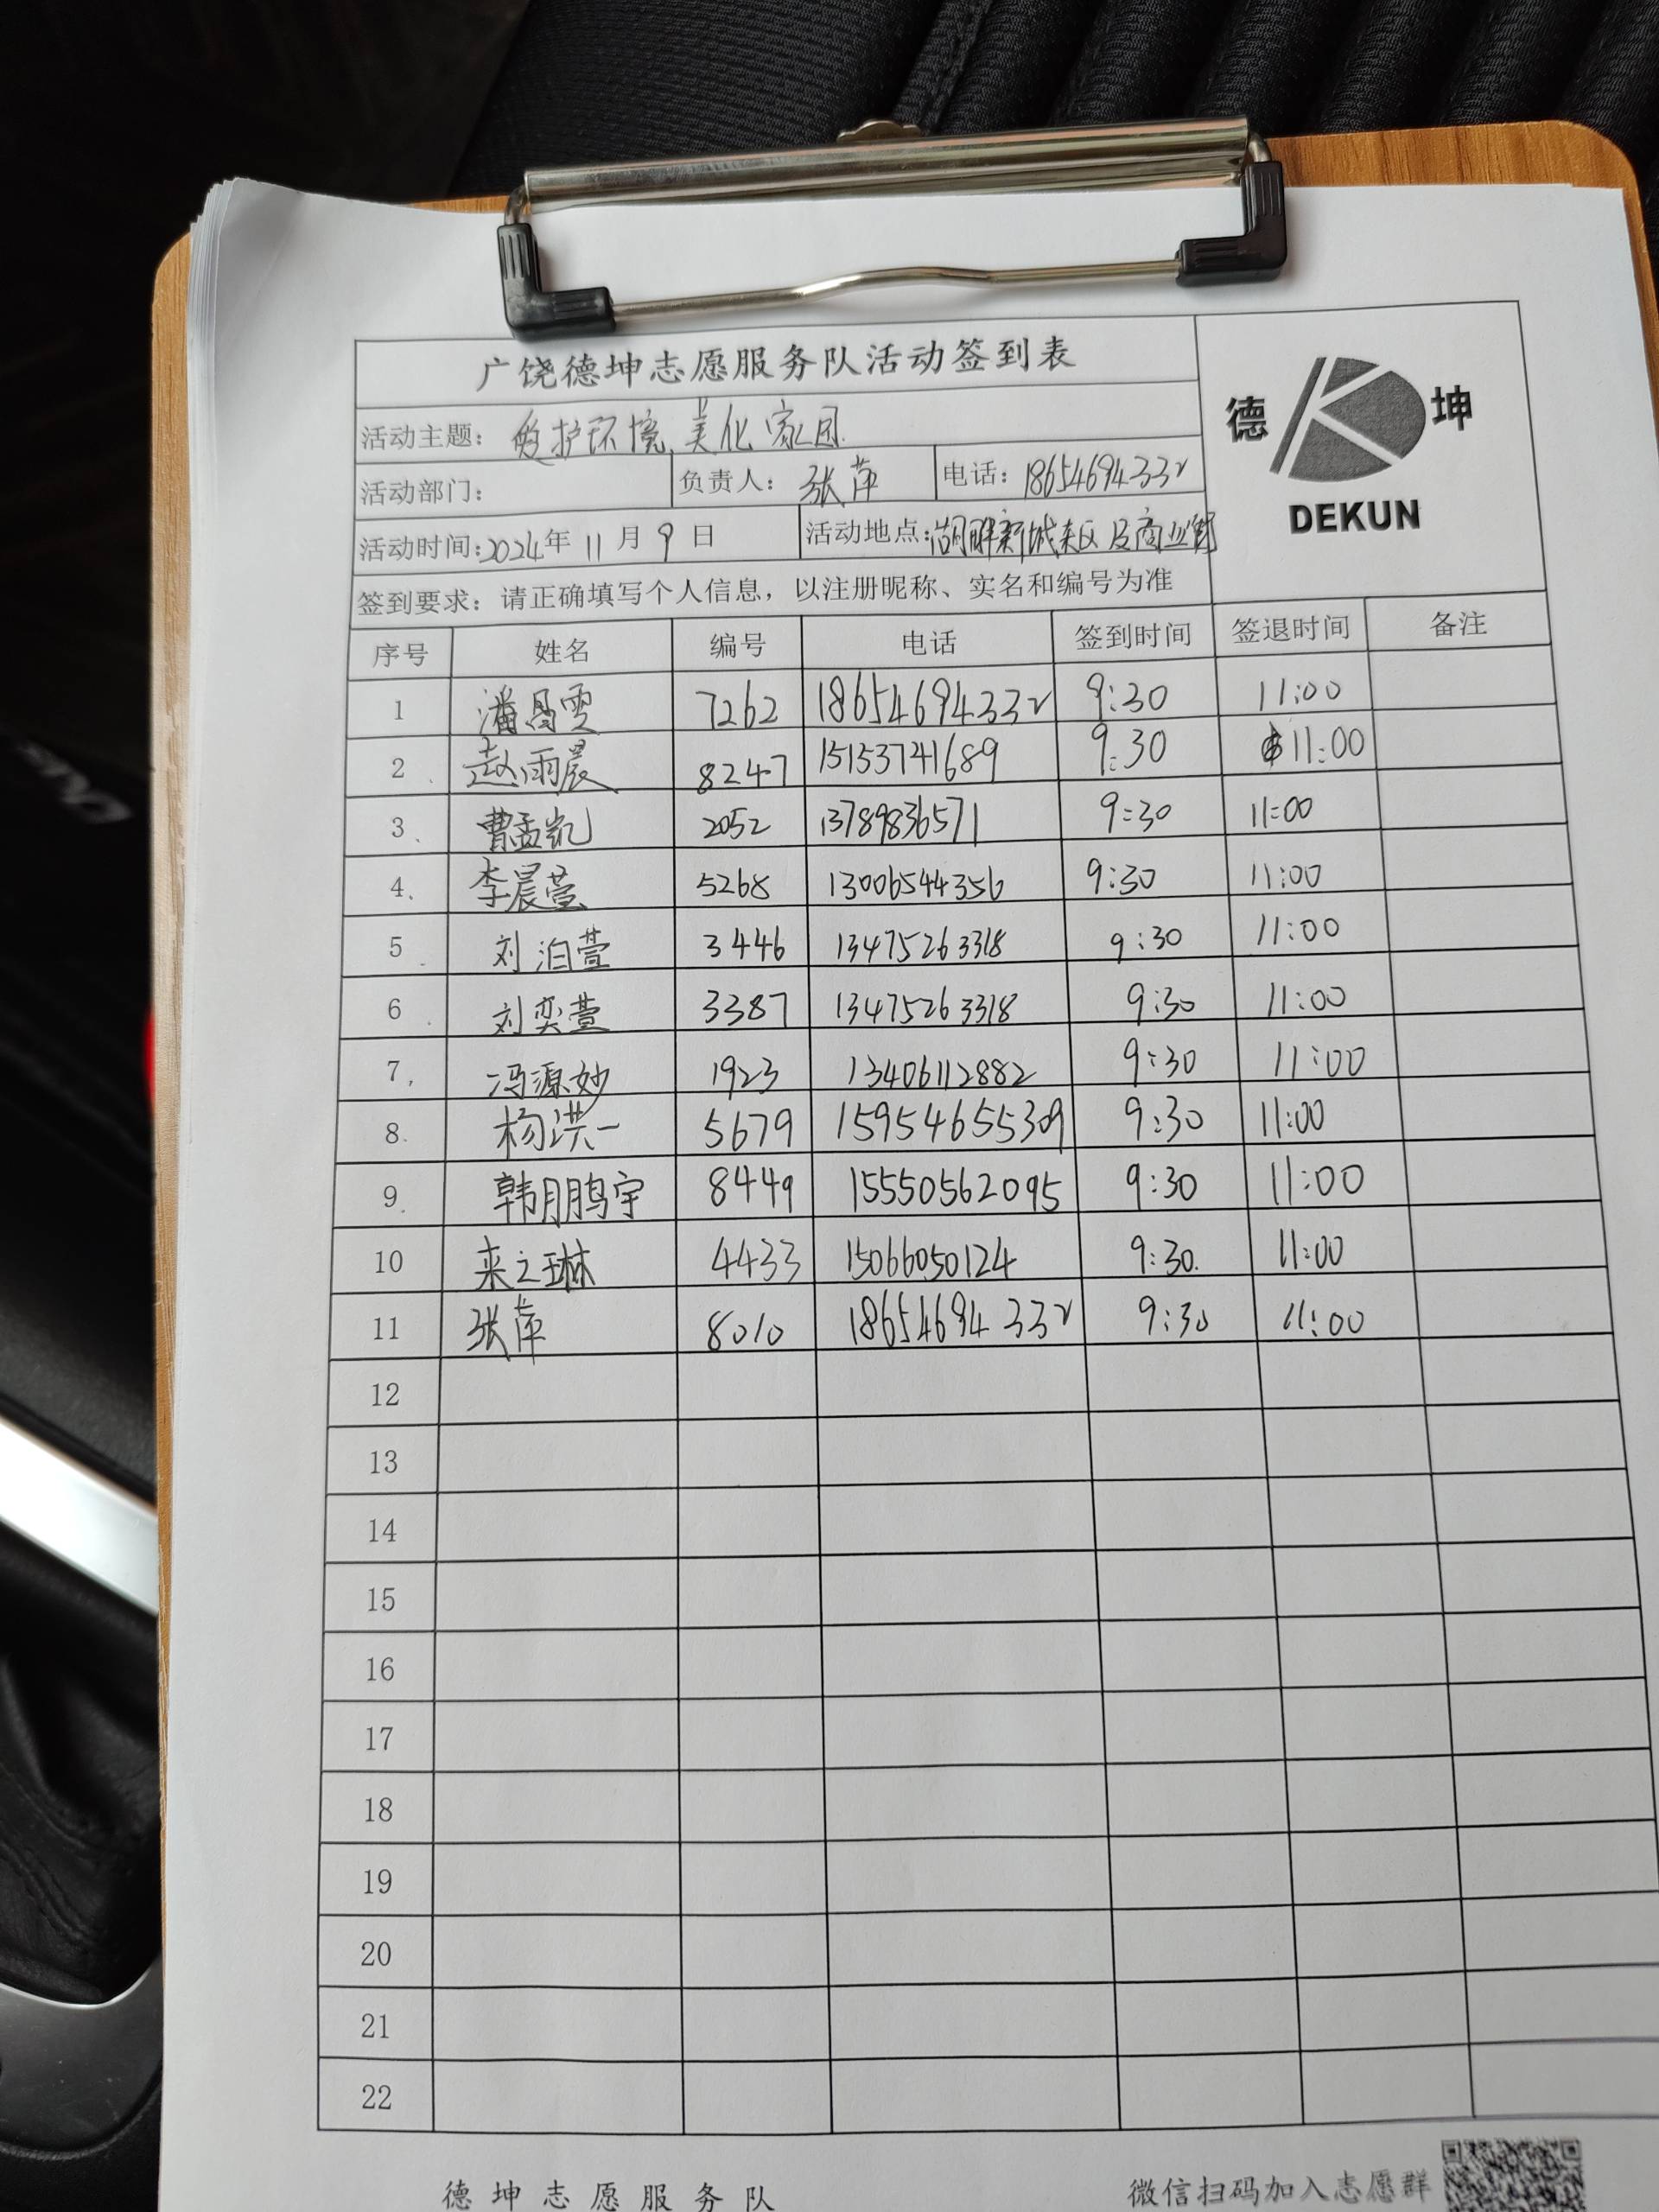 广饶德坤志愿服务队活动签到表
德 坤
DEKUN
活动主题：爱护环境 美化家园
活动部门： 负责人：张萍 电话：18654694332
活动时间：2024年 11月 9日 活动地点：湖畔新城东区及商业街
签到要求：请正确填写个人信息，以注册昵称、实名和编号为准
序号 姓名 编号 电话 签到时间 签退时间 备注
1 潘昌雯 7262 18654694332 9:30 11:00
2 赵雨晨 8247 15153741689 9:30 11:00
3 曹孟凯 2052 13789836571 9:30 11:00
4 李晨萱 5268 13006544356 9:30 11:00
5 刘泊萱 3446 13475263318 9:30 11:00
6 刘奕萱 3387 13475263318 9:30 11:00
7 冯源妙 1923 13406112882 9:30 11:00
8 杨洪一 5679 15954655309 9:30 11:00
9 韩鹏宇 8449 15550562095 9:30 11:00
10 来之琳 4433 15066050124 9:30 11:00
11 张萍 8010 18654694332 9:30 11:00
12
13
14
15
16
17
18
19
20
21
22
德坤志愿服务队 微信扫码加入志愿群